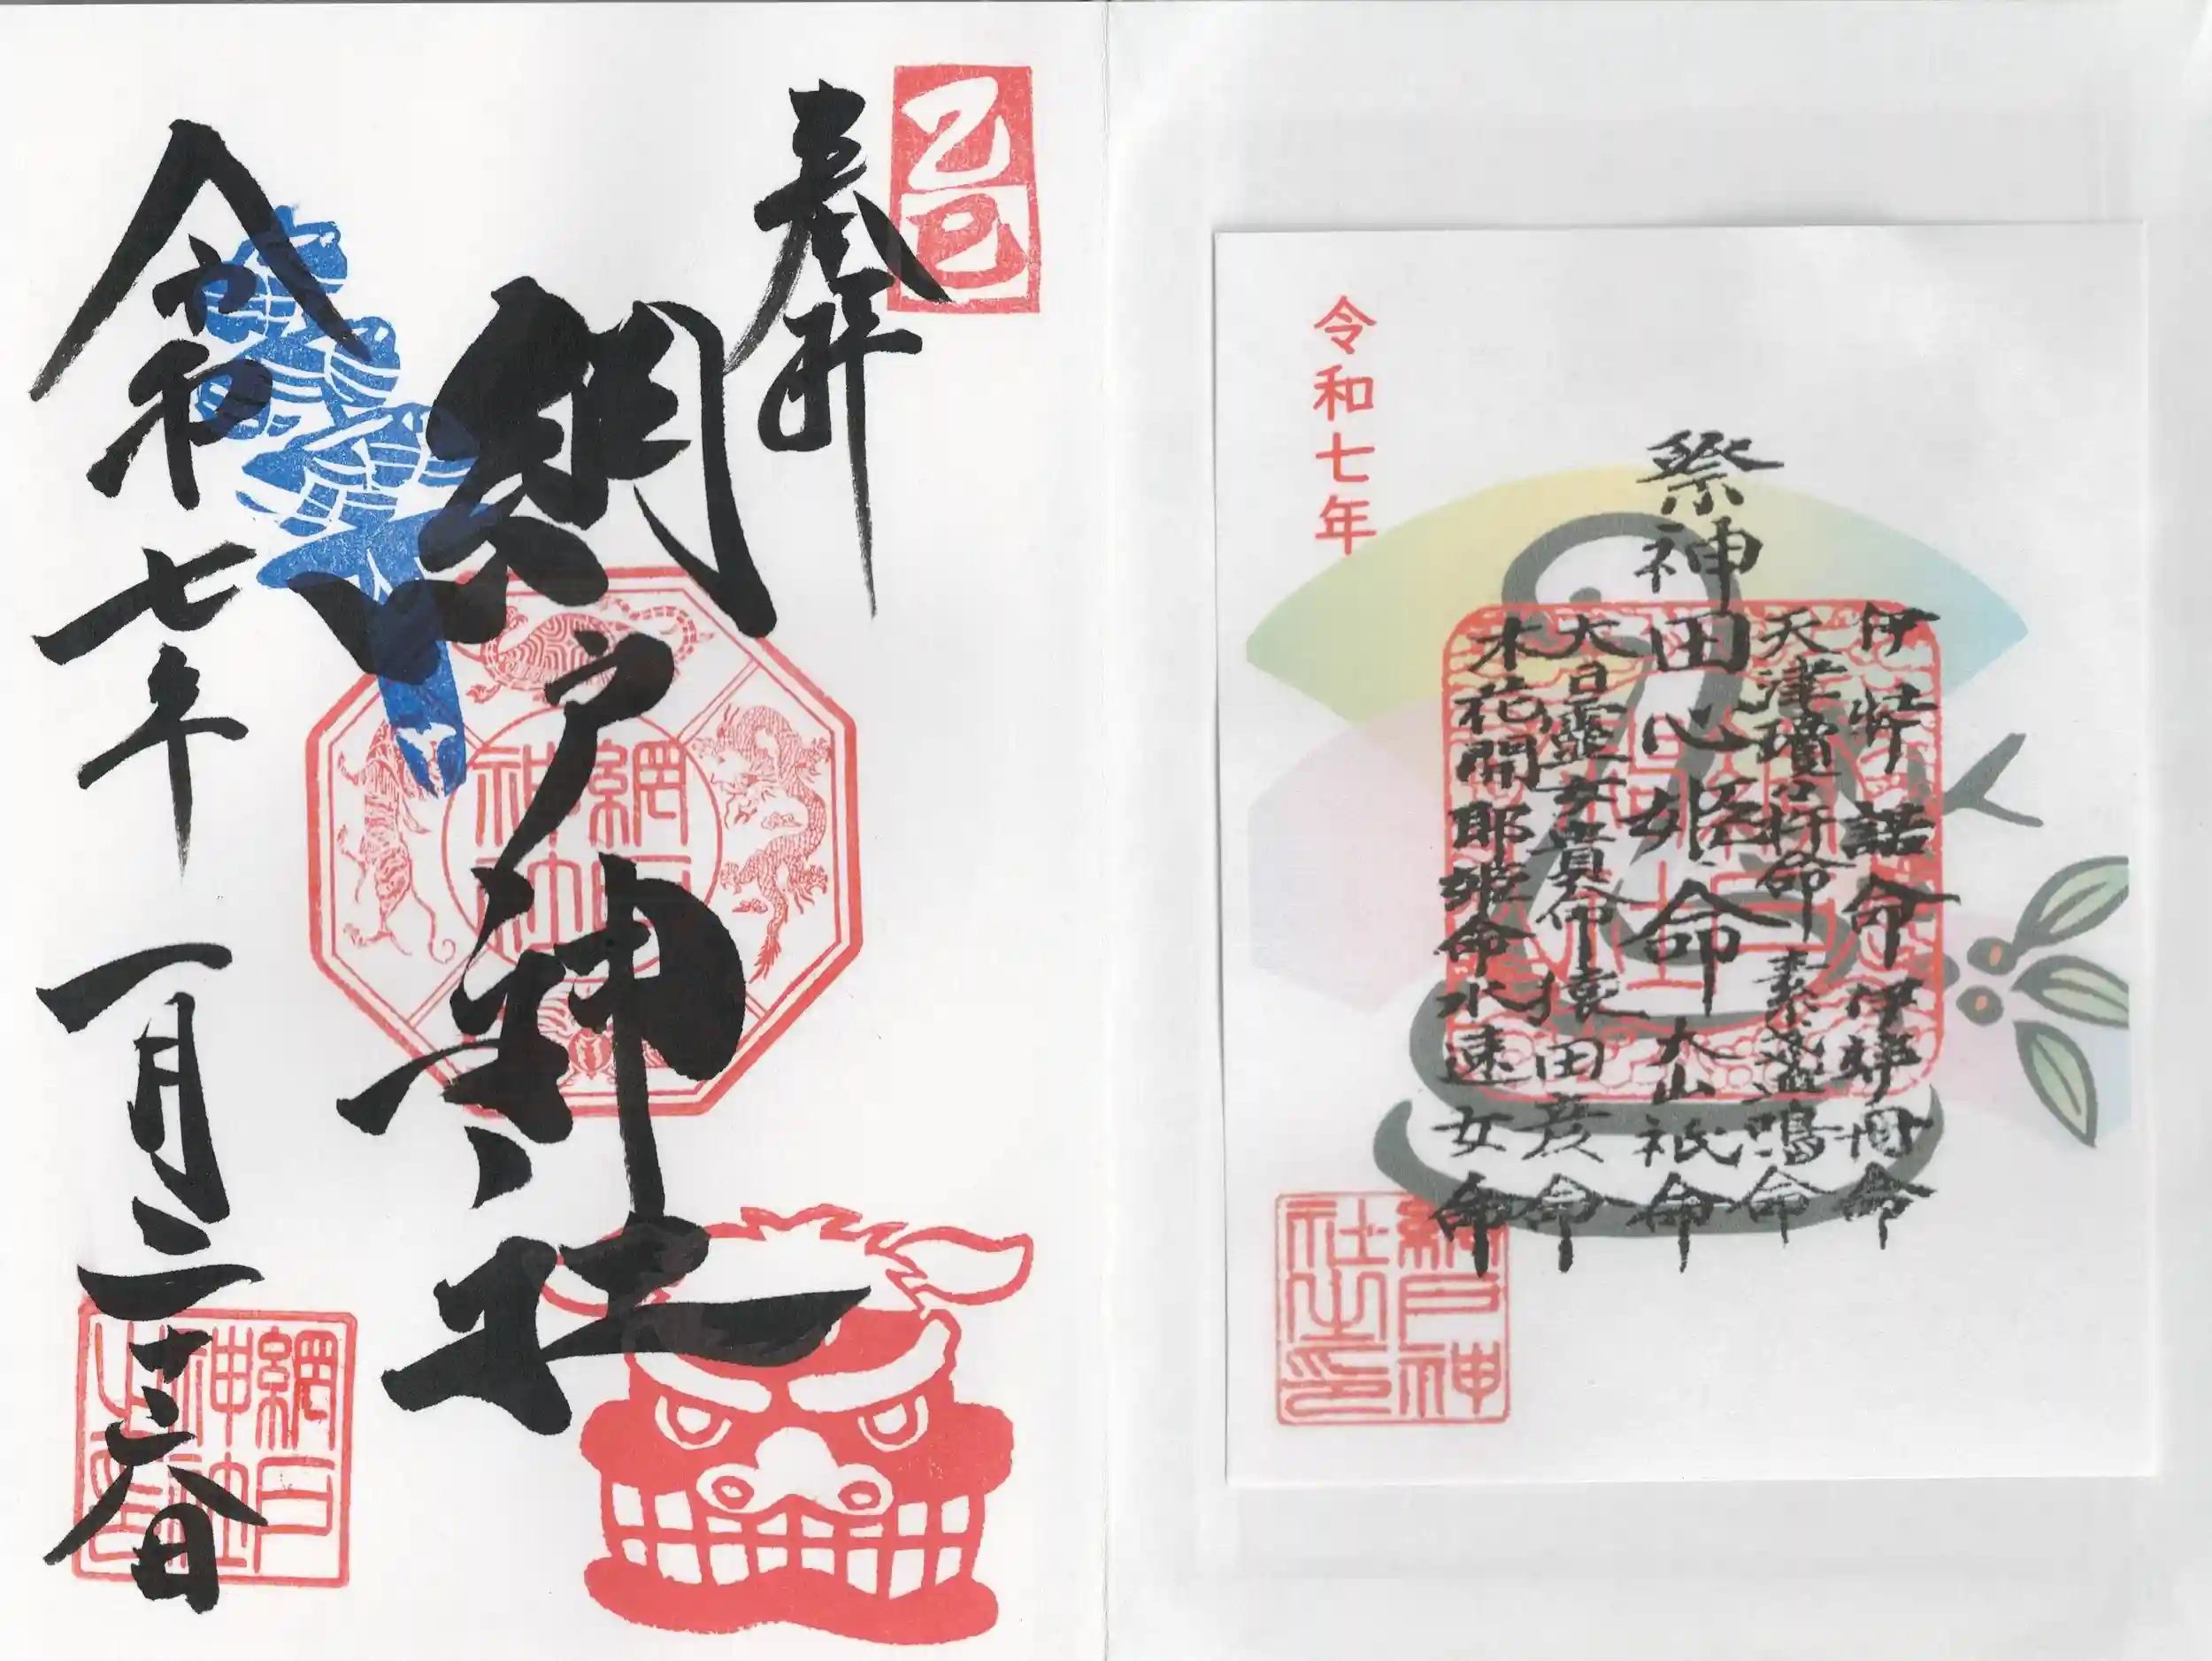 乙巳
奉拝
網戸神社
令和七年一月二十六日
網戸神社
網戸神社之印
令和七年
祭神
伊弉諾命 伊弉冊命
天津瓊々杵命 素盞鳴命
田心姫命 大山祇命
大日孁女貴命 猿田彦命
木花開耶姫命 水速女命
網戸神社之印